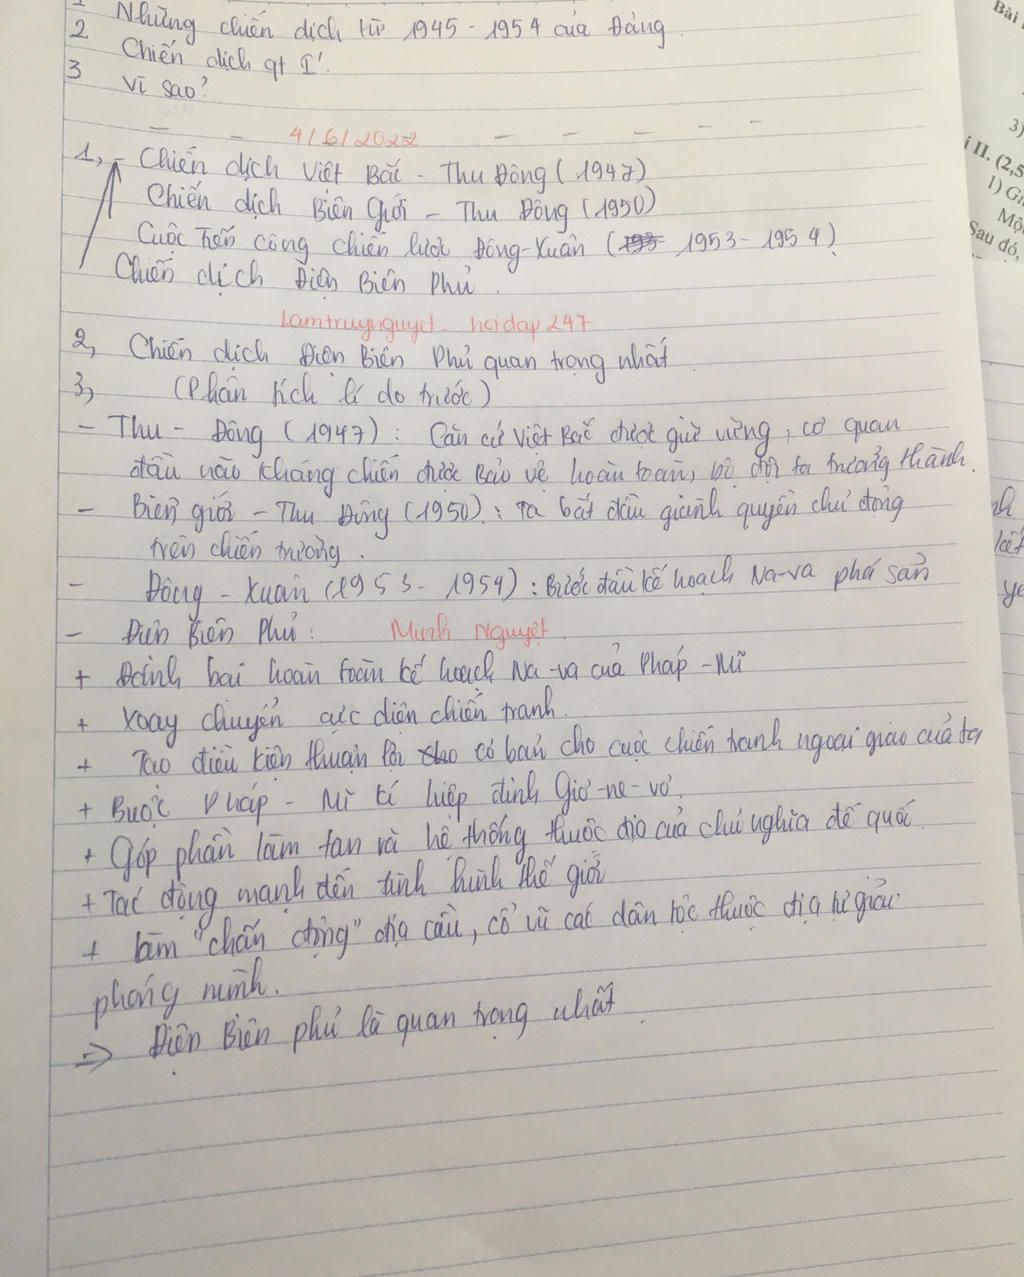 1 Những chiến dịch từ 1945 - 1954 của Đảng.
2 Chiến dịch qt I'.
3 Vì sao?
4/6/2022
1, - Chiến dịch Việt Bắc - Thu Đông (1947)
Chiến dịch Biên Giới - Thu Đông (1950)
Cuộc Tiến công chiến lược Đông-Xuân (195 1953-1954)
Chiến dịch Điện Biên Phủ.
Lamtruynguyet_hoidap247
2, Chiến dịch Điện Biên Phủ quan trọng nhất
3, (Phân tích lí do trước)
- Thu - Đông (1947) : Căn cứ Việt Bắc được giữ vững, cơ quan
đầu não kháng chiến được Bảo vệ hoàn toàn, bộ đội ta trưởng thành.
- Biên giới - Thu Đông (1950) : Ta bắt đầu giành quyền chủ động
trên chiến trường.
- Đông - Xuân (1953 - 1954) : Bước đầu kế hoạch Na-va phá sản
- Điện Biên Phủ: Minh Nguyệt
+ Đánh bại hoàn toàn kế hoạch Na-va của Pháp - Mĩ
+ Xoay chuyển cục diện chiến tranh.
+ Tạo điều kiện thuận lợi cho cơ bản cho cuộc chiến tranh ngoại giao của ta
+ Buộc Pháp - Mĩ kí hiệp định Giơ-ne-vơ.
+ Góp phần làm tan rã hệ thống thuộc địa của chủ nghĩa đế quốc
+ Tác động mạnh đến tình hình thế giới
+ làm "chấn động" địa cầu, cổ vũ các dân tộc thuộc địa tự giải
phóng mình.
=> Điện Biên phủ là quan trọng nhất
Bài
3)
i II. (2,5
1) Gi
Mộ
Sau đó,